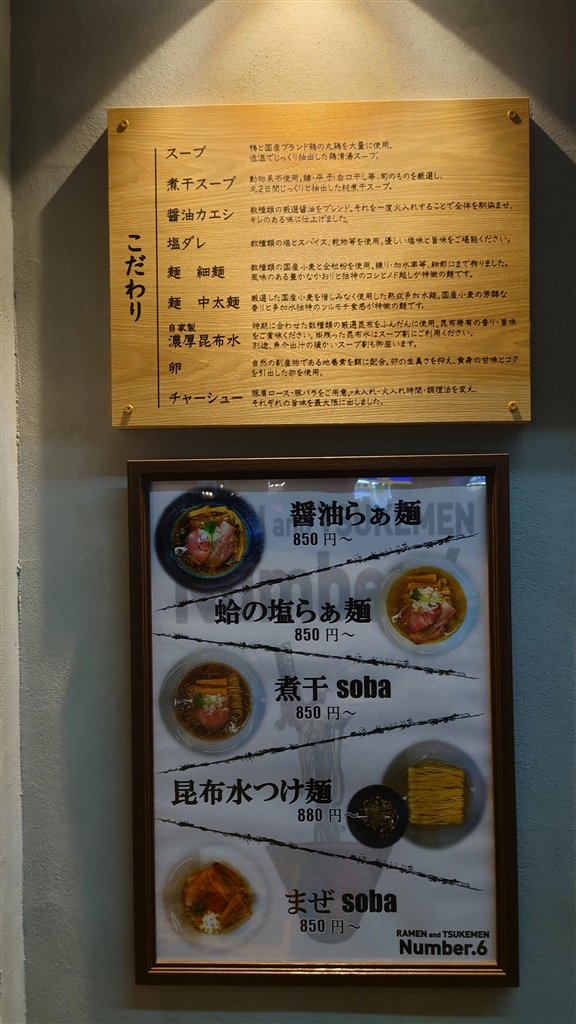 こだわり
スープ
鴨と国産ブランド鶏の丸鶏を大量に使用。
低温でじっくり抽出した鶏清湯スープ。
煮干スープ
動物系不使用。鯵・平子・白口干し等、旬のものを厳選し、
丸2日間じっくりと抽出した純煮干スープ。
醤油カエシ
数種類の厳選醤油をブレンド。それを一度火入れすることで全体を馴染ませ、
キレのある味に仕上げました。
塩ダレ
数種類の塩とスパイス、乾物等を使用。優しい塩味と旨味をご堪能ください。
麺 細麺
数種類の国産小麦と全粒粉を使用。練り・加水率等、細部にまで拘りました。
風味のある豊かなかおりと独特のコシとノド越しが特徴の麺です。
麺 中太麺
厳選した国産小麦を惜しみなく使用した熟成多加水麺。国産小麦の芳醇な
香りと多加水独特のツルモチ食感が特徴の麺です。
自家製
濃厚昆布水
時期に合わせた数種類の厳選昆布をふんだんに使用。昆布特有の香り・旨味
をご賞味ください。※残った昆布水はスープ割にご利用ください。
別途、魚介出汁の暖かいスープ割も御座います。
卵
自然の副産物である地養素を餌に配合。卵の生臭さを抑え、黄身の甘味とコク
を引出した卵を使用。
チャーシュー
豚肩ロース・豚バラをご用意。味入れ・火入れ時間・調理法を変え、
それぞれの旨味を最大限に出しました。
醤油らぁ麺
850 円～
蛤の塩らぁ麺
850 円～
煮干 soba
850 円～
昆布水つけ麺
880 円～
まぜ soba
850 円～
RAMEN and TSUKEMEN
Number.6